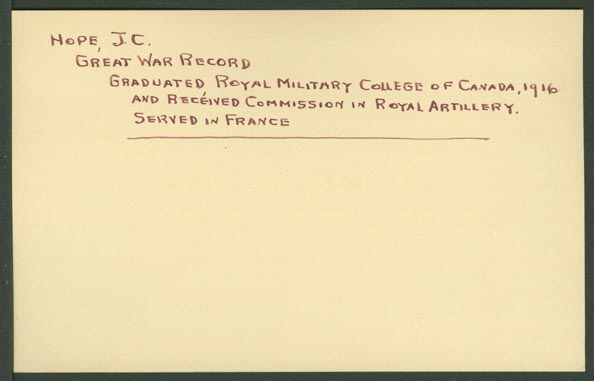 HOPE, J.C.
GREAT WAR RECORD
GRADUATED ROYAL MILITARY COLLEGE OF CANADA, 1916
AND RECEIVED COMMISSION IN ROYAL ARTILLERY.
SERVED IN FRANCE